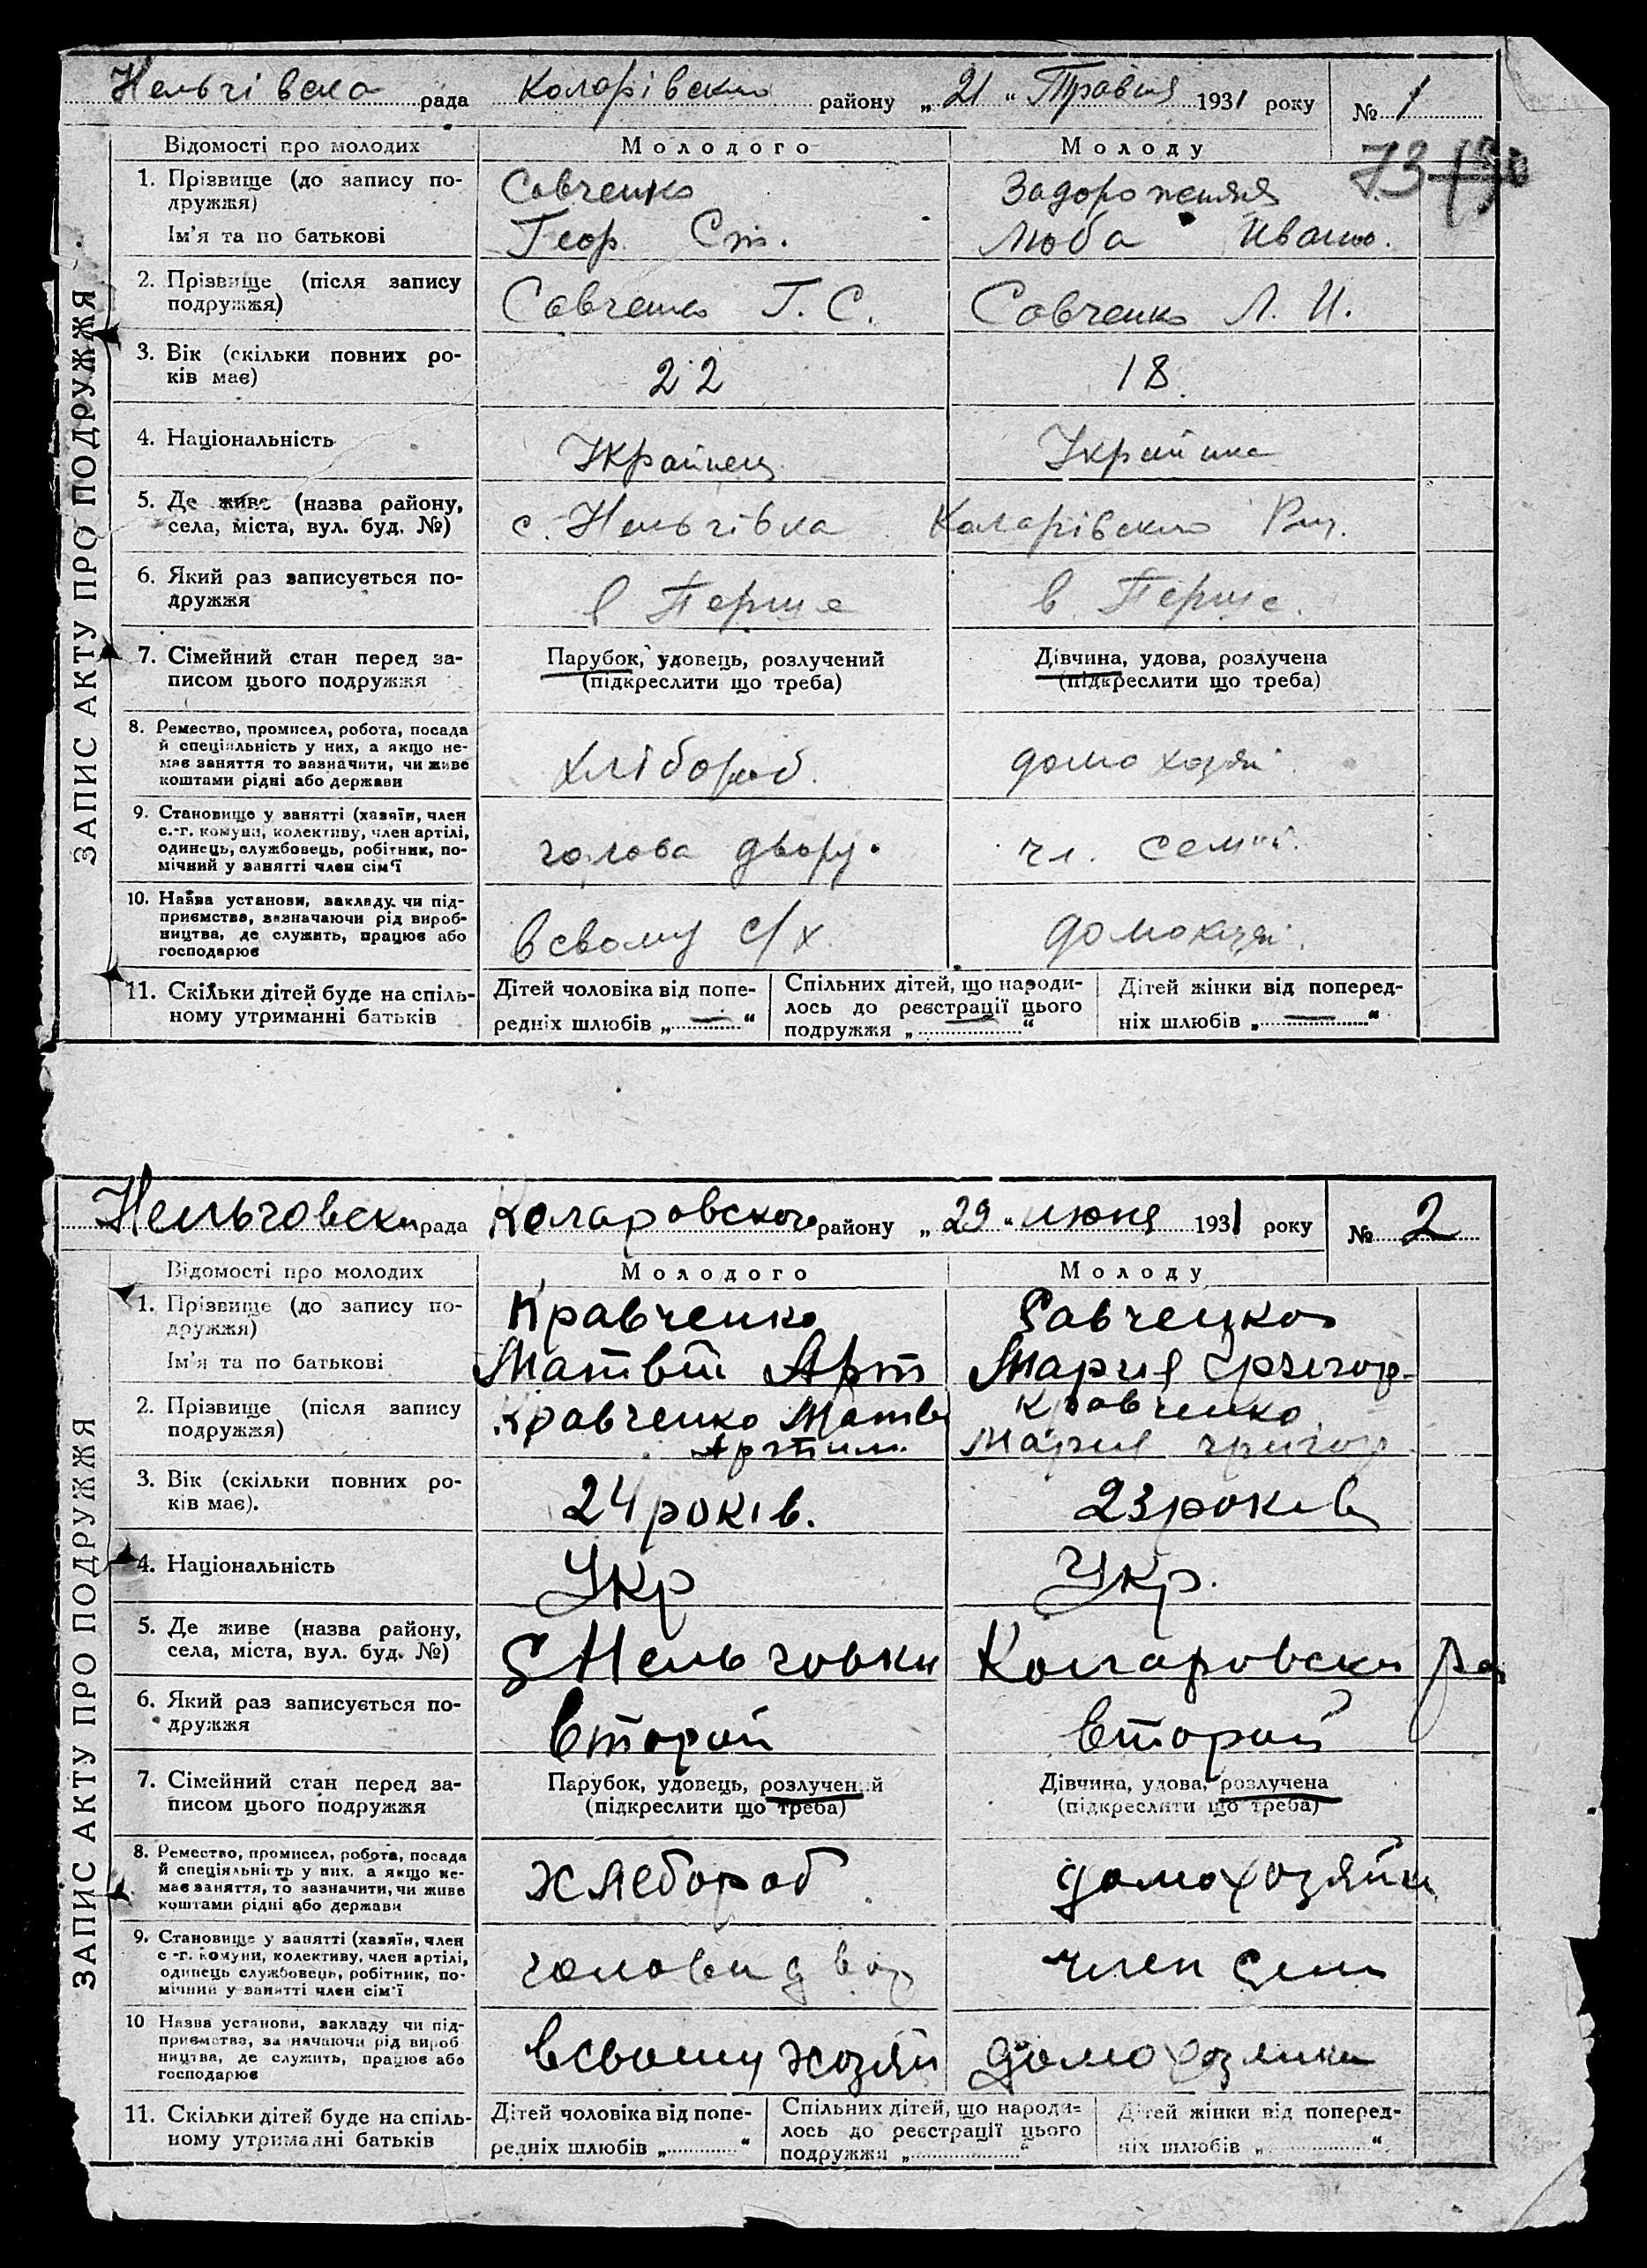 Нельгівска рада Коларівского району „ 21 “ Травня 1931 року № 1
73
ЗАПИС АКТУ ПРО ПОДРУЖЖЯ
Відомості про молодих Молодого Молоду
1. Прізвище (до запису по-
дружжя) Савченко Задорожняя
Ім'я та по батькові Геор Ст. Люба Ивано.
2. Прізвище (після запису
подружжя) Савченко Г. С. Савченко Л. И.
3. Вік (скільки повних ро-
ків має) 22 18
4. Національність Украйнец Украйнка
5. Де живе (назва району,
села, міста, вул. буд. №) с. Нельгівка Коларівского
6. Який раз записується по-
дружжя в Перше в Перше.
7. Сімейний стан перед за- Парубок, удовець, розлучений Дівчина, удова, розлучена
писом цього подружжя (підкреслити що треба) (підкреслити що треба)
8. Ремество, промисел, робота, посада
й спеціяльність у них, а якщо не-
має заняття то зазначити, чи живе
коштами рідні або держави хлібороб домохозяй
9. Становище у занятті (хазяїн, член
с.-г. комуни, колективу, член артілі,
одинець, службовець, робітник, по-
мічний у занятті член сім'ї голова двору. чл. семьи.
10. Назва установи, закладу чи під-
приємства, зазначаючи рід вироб-
ництва, де служить, працює або
господарює всвому с/х домохазяй.
11. Скільки дітей буде на спіль- Дітей чоловіка від попе- Спільних дітей, що народи- Дітей жінки від поперед-
ному утриманні батьків редніх шлюбів „ — “ лось до реєстрації цього ніх шлюбів „ — “
подружжя „ — “
Нельговски рада Коларовского району „ 29 “ июня 1931 року № 2
ЗАПИС АКТУ ПРО ПОДРУЖЖЯ
Відомості про молодих Молодого Молоду
1. Прізвище (до запису по-
дружжя) Кравченко Савченко
Ім'я та по батькові Матвій Арт Мария Григор.
2. Прізвище (після запису Кравченко Матве Кравченко
подружжя) Артим. Мария григор
3. Вік (скільки повних ро-
ків має). 24 років. 23 років
4. Національність Укр Укр.
5. Де живе (назва району,
села, міста, вул. буд. №) С Нельговки Коларовски ра
6. Який раз записується по-
дружжя Второй второй
7. Сімейний стан перед за- Парубок, удовець, розлучений Дівчина, удова, розлучена
писом цього подружжя (підкреслити що треба) (підкреслити що треба)
8. Ремество, промисел, робота, посада
й спеціяльність у них, а якщо не-
має заняття, то зазначити, чи живе
коштами рідні або держави хлебороб домохозяйи
9. Становище у занятті (хазяїн, член
с.-г. комуни, колективу, член артілі,
одинець службовець, робітник, по-
мічний у занятті член сім'ї голови двор член семи
10 Назва установи, закладу чи під-
приємства, зазначаючи рід вироб
ництва, де служить, працює або
господарює всвоему хозяй домохозяики
11. Скільки дітей буде на спіль- Дітей чоловіка від попе- Спільних дітей, що народи- Дітей жінки від поперед-
ному утриманні батьків редніх шлюбів „ “ лось до реєстрації цього ніх шлюбів „ “
подружжя „ “